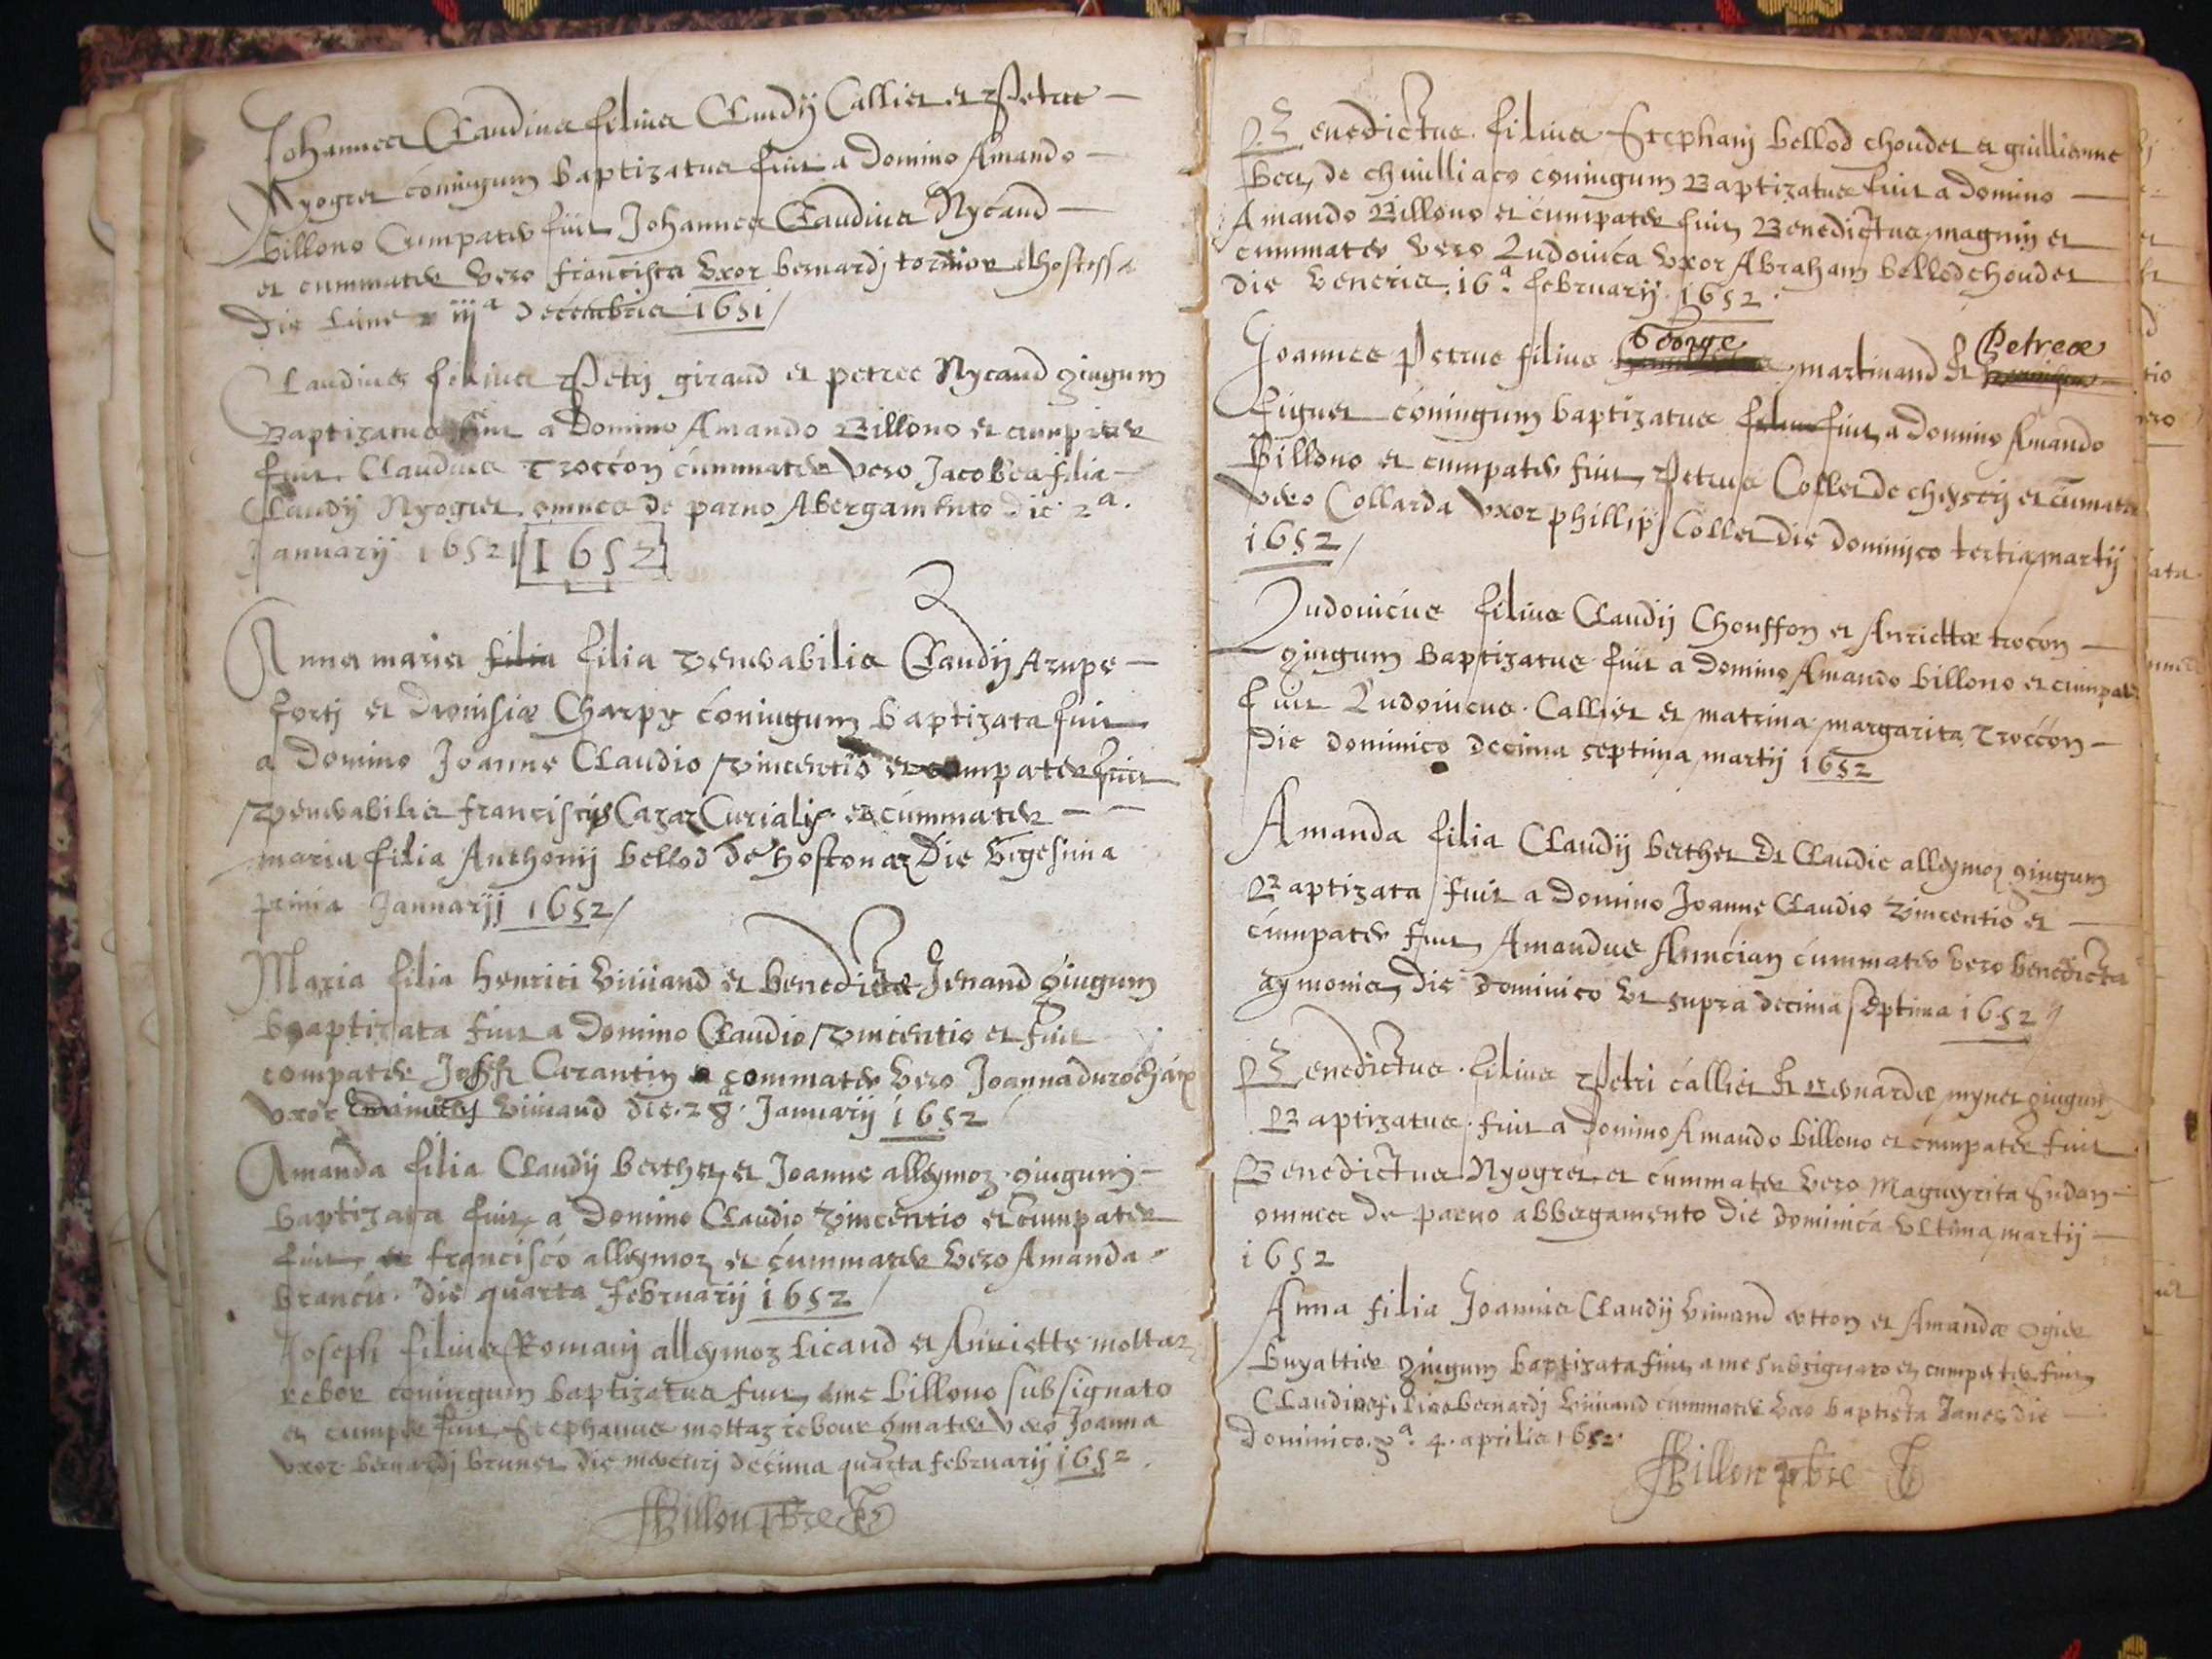 Johannes Claudius filius Claudij Callier et Petree
Nyogret coniugum baptizatus fuit a Domino Amando
billono Cumpater fuit Johannes Claudius Nycaud
et cummater vero francisca vxor bernardj
Die Lune iija decembris 1651
Claudius filius Petrj giraud et petree Nycaud giugum
Baptizatus fuit a Domino Amando Billono et cumpater
fuit Claudius Troccon cummater vero Jacobea filia
Claudij Nyogret omnes de paruo Abergamento die 2a.
January 1652 1652
Anna maria filia filia venerabilis Claudij Arupe
fortj et Dionisiæ Charpy coniugum baptizata fuit
a Domino Joanne Claudio vincentio et compater fuit
venerabilis franciscus Cazaz Curialis et cummater
maria filia Anthonij bellod de hostonaz Die vigesima
prima Januarij 1652
Maria filia henrici viuiand et benedictæ Jenand giugum
baptizata fuit a Domino Claudio vincentio et fuit
compater Joseph Carantin commater vero Joanna
vxor viuiand die 28a Januarij 1652
Amanda filia Claudij berthet et Joanne alleymoz giugum
baptizata fuit a Domino Claudio vincentio et cumpater
fuit francisco alleymoz et cummater vero Amanda
brancu die quarta februarij 1652
Joseph filius Romanj alleymoz Licaud et Anriette mottaz
rebor coniugum baptizatus fuit a me billono subsignato
et cumper fuit Stephanus mottaz rebour gmater vero Joanna
vxor bernardj brunet die mercurj decima quarta februarij 1652
Billon pbre
Benedictus filius Stephanj bellod choudet et guillianne
de chiuilliaco coniugum Baptizatus fuit a domino
Amando Billono et cumpater fuit Benedictus magnin et
cummater vero Ludouica vxor Abraham bellod choudet
die veneris 16a. februarij 1652
Joannes Petrus filius George martinand et Petreæ
Figuet coniugum baptizatus fuit a domino Amando
Billono et cumpater fuit Petrus Collet de et cumater
vero Collarda vxor phillipj Collet die dominico tertia martij
1652
Ludouicus filius Claudij Chouffon et Anriettæ trocon
giugum baptizatus fuit a domino Amando billono et cumpater
fuit Ludouicus Callier et matrina margarita Troccon
die dominico decima septima martij 1652
Amanda filia Claudij berthet et Claudie alleymoz giugum
Baptizata fuit a domino Joanne Claudio vincentio et
cumpater fuit Amandus cummater vero benedicta
aymonier die dominico vt supra decima septima 1652
Benedictus filius Petri callier et bernardæ mynet giugum
Baptizatus fuit a domino Amando billono et cumpater fuit
Benedictus Nyogret et cummater vero Margueyrita
omnes de paruo abbergamento die dominica vltima martij
1652
Anna filia Joannis Claudij viuiand et Amandæ ogier
buyattier giugum baptizata fuit a me subsignato et cumpater fuit
Claudius filius bernardj viuiand cummater vero baptista Janet die
Dominico. 4. aprilis 1652
Billon pbre